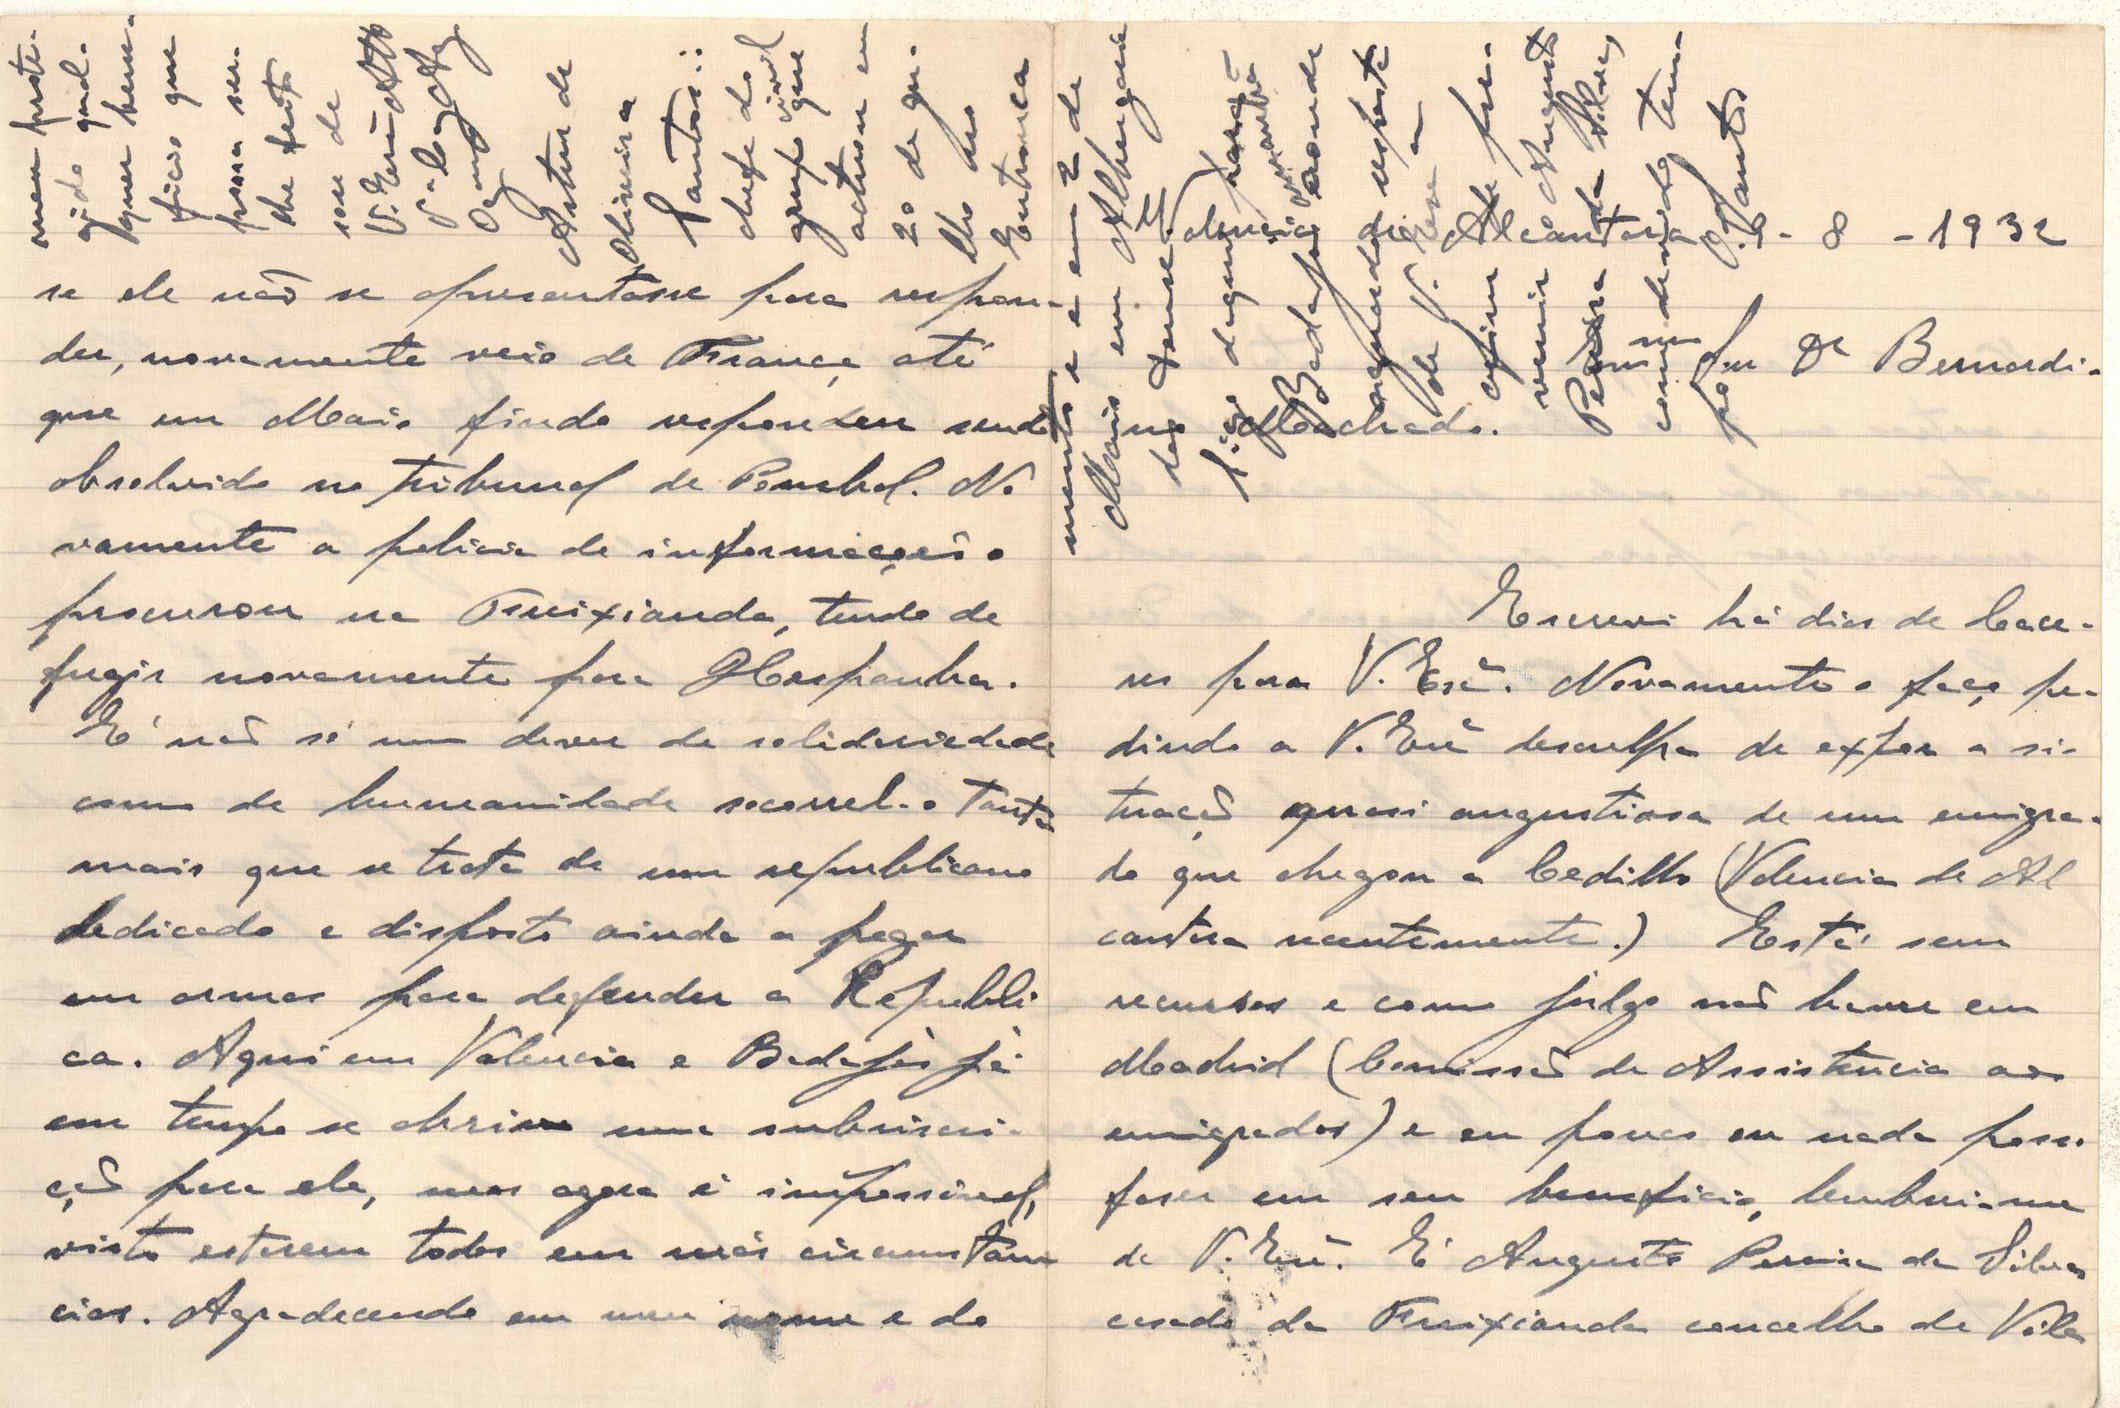 Valencia de Alcantara 9 - 8 - 1932
Exmo Snr Dr Bernardi-
no Machado.
Escrevi há dias de Cace-
res para V. Exª. Novamente o faço pe-
dindo a V. Exª desculpa de expor a si-
tuação quasi angustiosa de um emigra-
do que chegou a Cedillo (Valencia de Al
cantara recentemente.) Está sem
recursos e como julgo não haver em
Madrid (Comissão de Assistencia aos
emigrados) e eu pouco ou nada posso
faser em seu beneficio, lembrei-me
de V. Exª. É Augusto Pereira da Silva
casado da Freixianda concelho de Vila
se ele não se apresentasse para respon-
der, novamente veio de França até
que em Maio findo respondeu sendo
absolvido no tribunal de Pombal. No
vamente a policia de informações o
procurou na Freixianda, tendo de
fugir novamente para Hespanha.
É não só um dever de solidariedade
como de humanidade socorrel-o tanto
mais que se trata de um republicano
dedicado e disposto ainda a pegar
em armas para defender a Republi
ca. Aqui em Valencia e Badajós já
em tempo se abriu uma subscri-
ção para ele, mas agora é impossivel,
visto estarem todos em más circunstan
cias. Agradecendo em meu nome e do
meu prote-
gido qual-
quer bene-
ficio que
possa ser-
lhe feito
sou de
V. Exª Attº
Artur de
Oliveira
Santos:
chefe do
grupo civil que
actuou em
20 de ju-
lho no
Entroncamento e em 2 de
Maio em Alhergaria
dos Doze.
Sigo daqui para
Badajos aonde
aguardo resposta
de V. Exª a
afim de pre-
venir Augusto
Pereira da Silva
com devido tem-
po
O. Santos